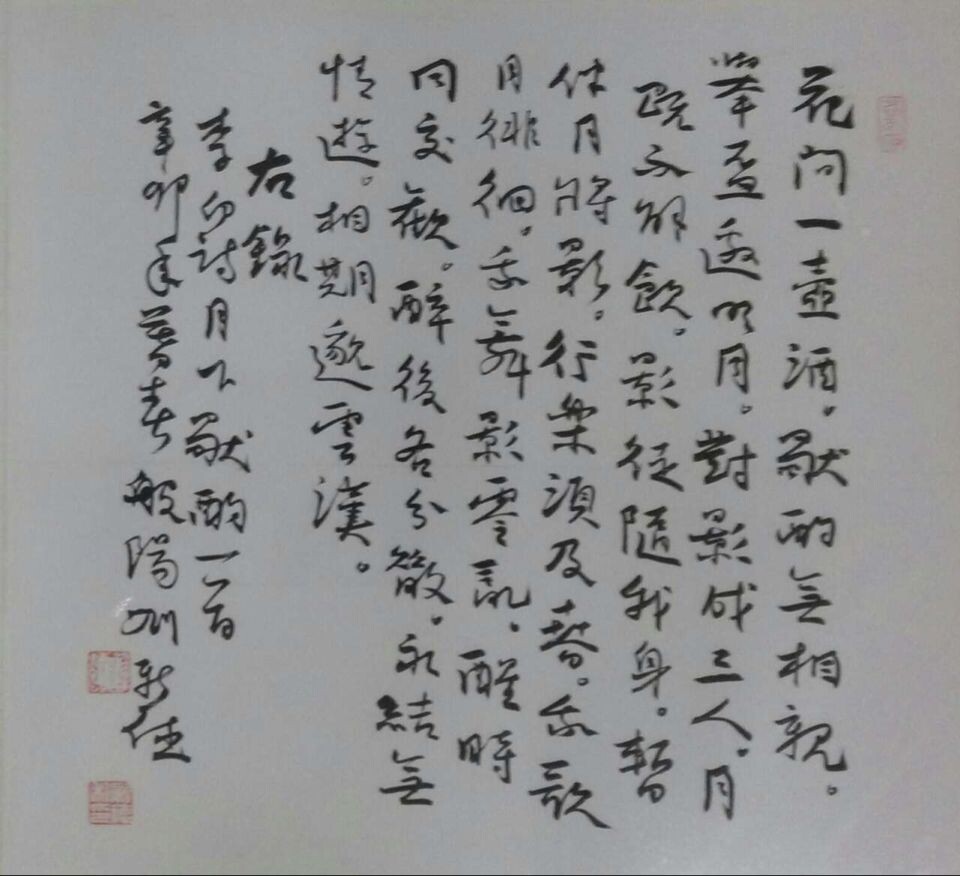 花间一壺酒，獨酌無相親。
舉盃邀明月。對影成三人。月
既不解飲。影徒隨我身。暫
伴月將影。行樂須及春。我歌
月徘徊。我舞影零亂。醒時
同交歡。醉後各分散。永結無
情遊。相期邈雲漢。
右錄
李白詩月下獨酌一首
辛卯年暮春般陽